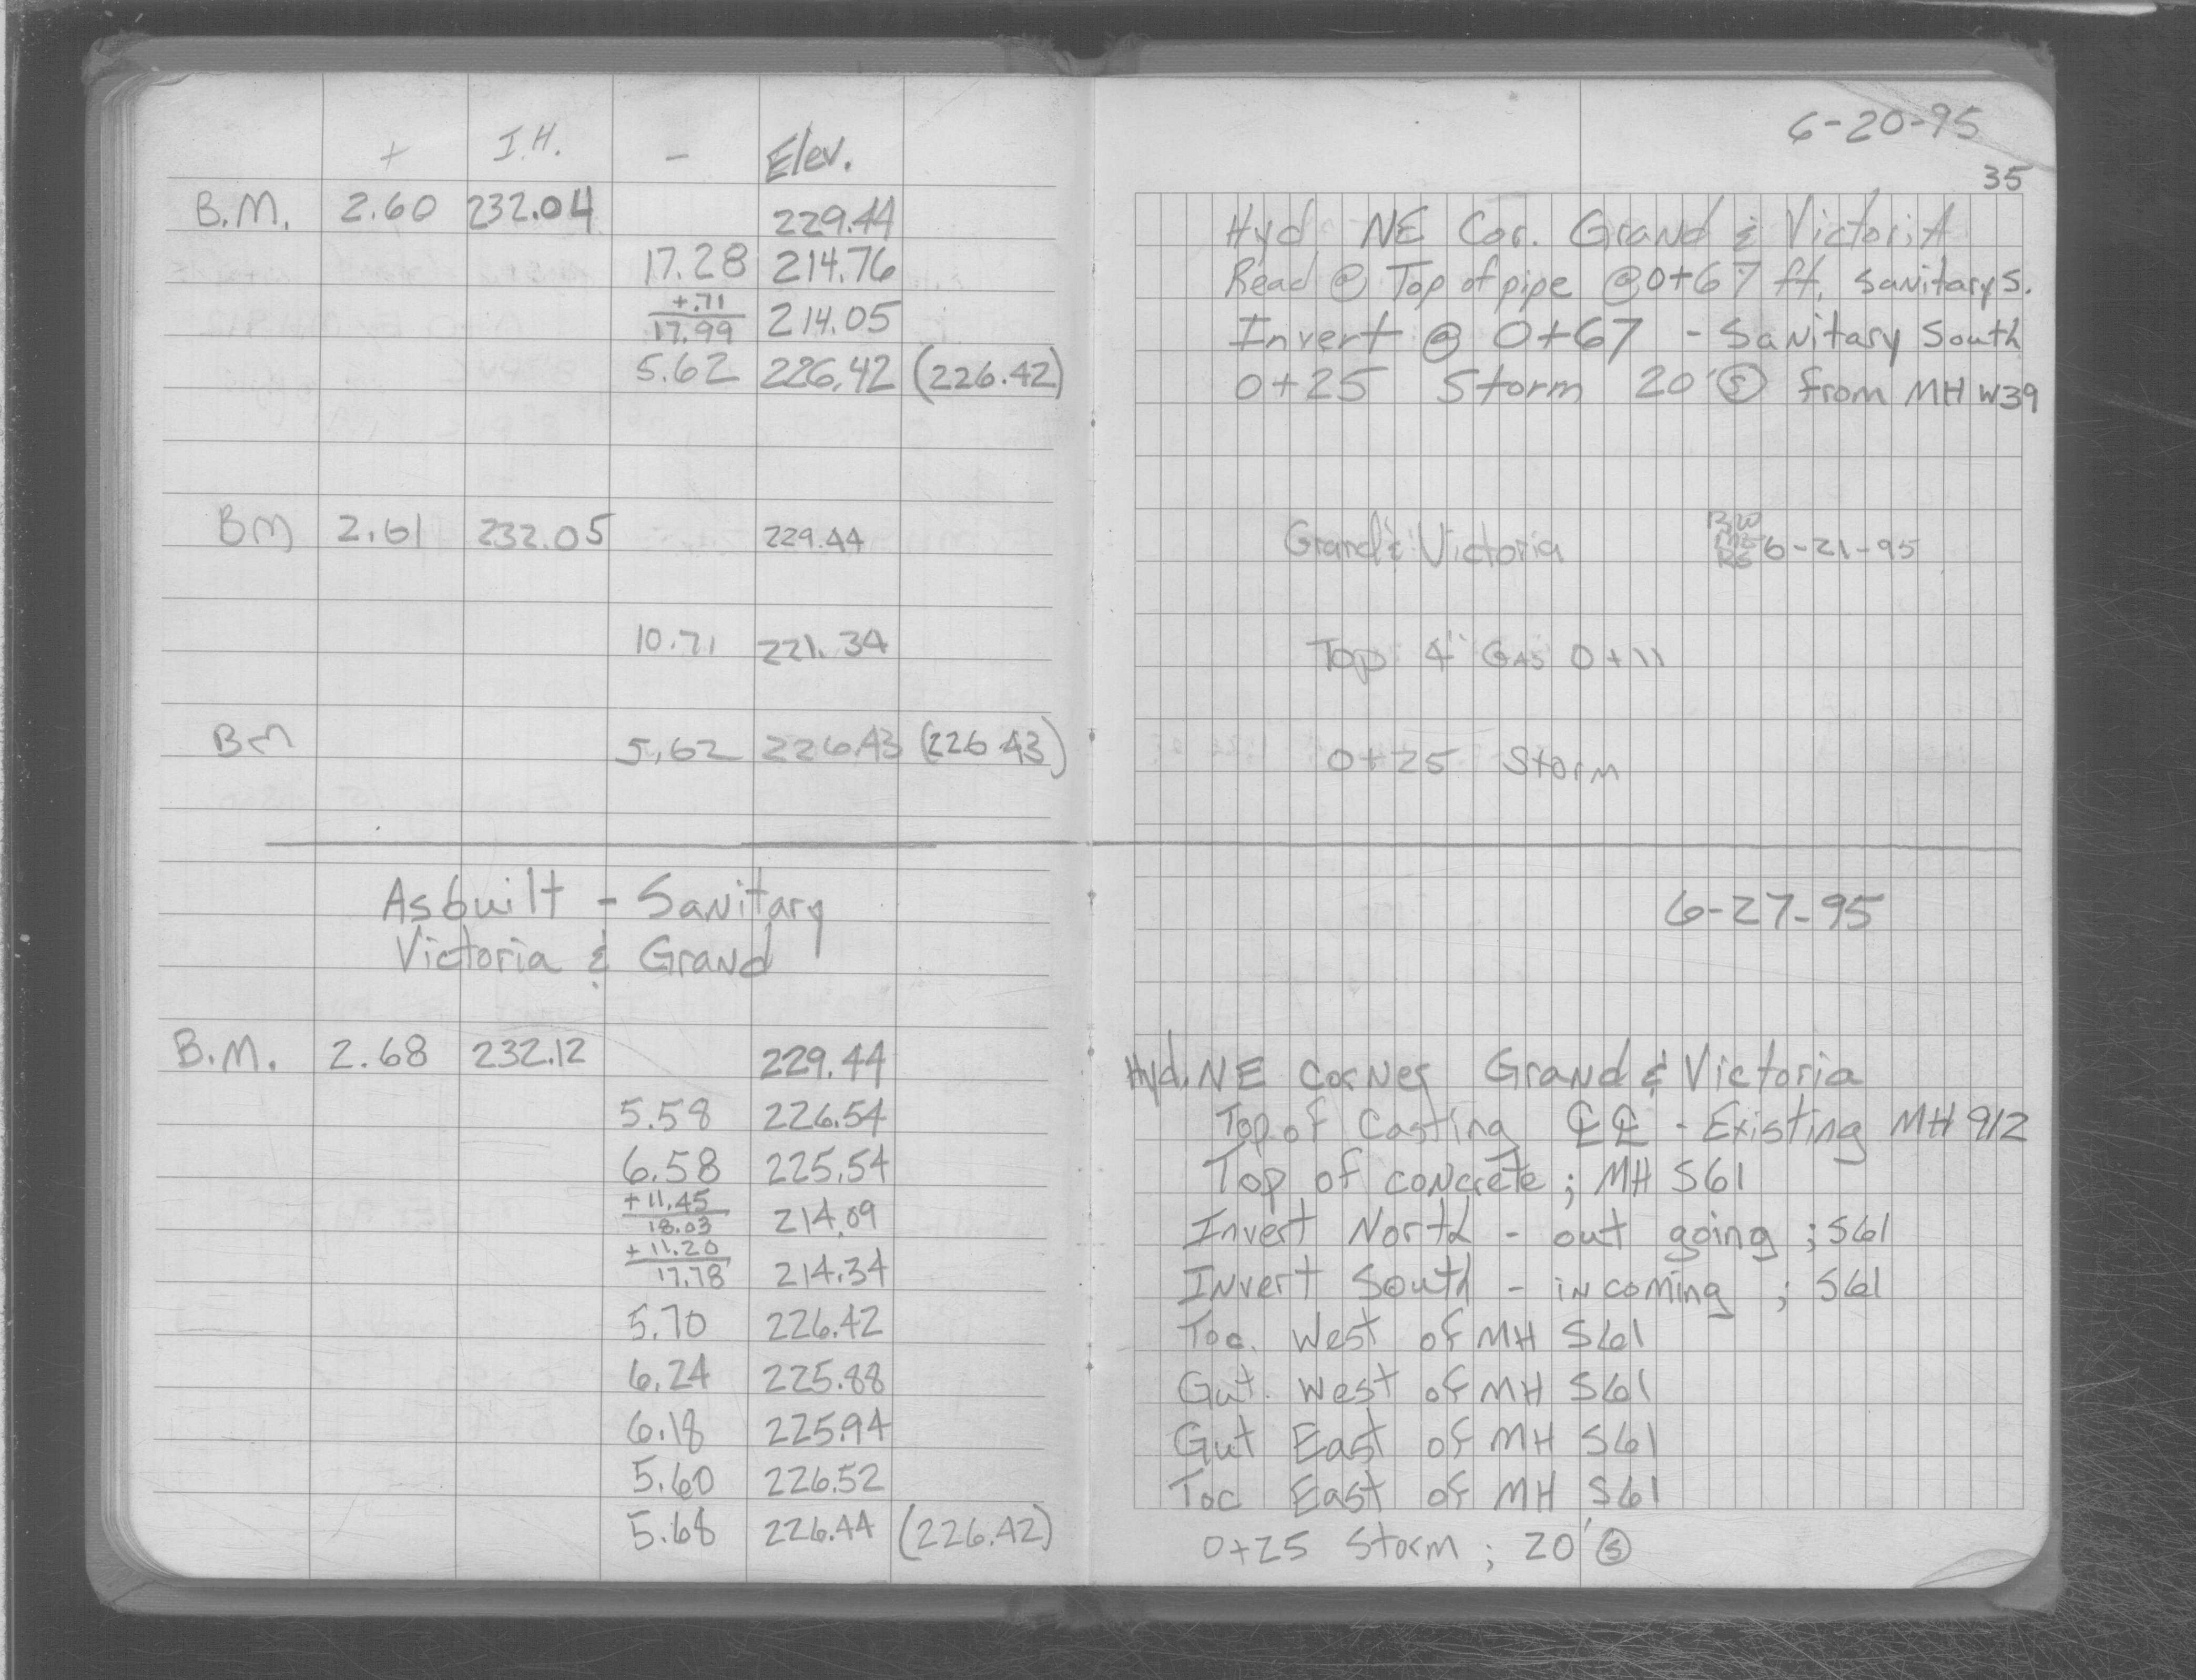 6-20-95
35
+ I.H. - Elev.
B.M. 2.60 232.04 229.44 Hyd. NE Cor. Grand & Victoria
17.28 214.76 Read @ Top of pipe @ 0+67 ft. Sanitary S.
+.71
17.99 214.05 Invert @ 0+67 - Sanitary South
5.62 226.42 (226.42) 0+25 Storm 20' Ⓢ from MH W39
BM 2.61 232.05 229.44 Grand & Victoria 6-21-95
10.71 221.34 Top 4" Gas 0+11
BM 5.62 226.43 (226.43) 0+25 Storm
Asbuilt - Sanitary 6-27-95
Victoria & Grand
B.M. 2.68 232.12 229.44 Hyd. NE Corner Grand & Victoria
5.58 226.54 Top of Casting ℄ ℄ - Existing MH 912
6.58 225.54 Top of concrete ; MH S61
+11.45
18.03 214.09 Invert North - out going ; S61
+11.20
17.78 214.34 Invert South - in coming ; S61
5.70 226.42 Toc. West of MH S61
6.24 225.88 Gut. West of MH S61
6.18 225.94 Gut East of MH S61
5.60 226.52 Toc East of MH S61
5.68 226.44 (226.42) 0+25 Storm ; 20' Ⓢ